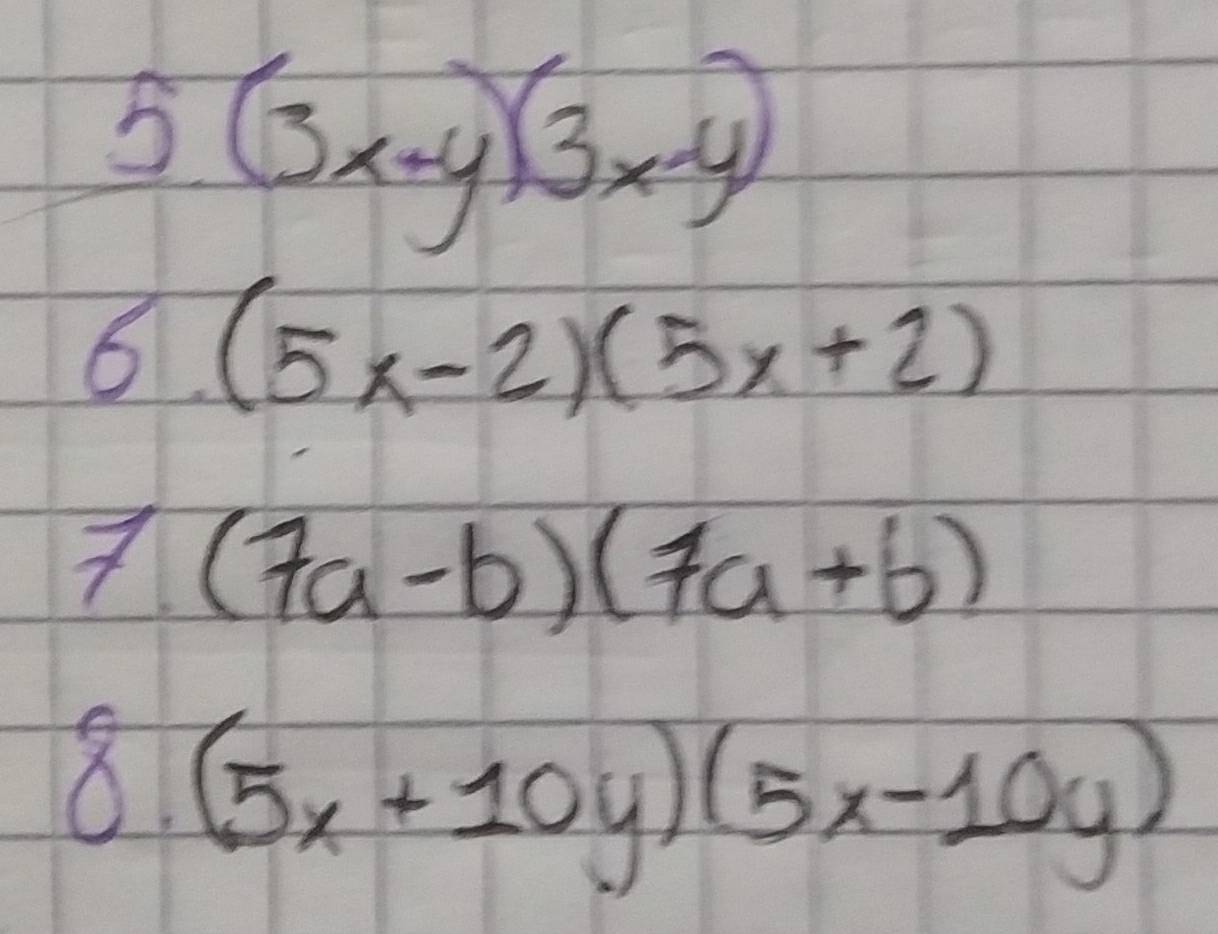 5. (3x+y)(3x-y)
6. (5x-2)(5x+2)
7. (7a-b)(7a+b)
8. (5x+10y)(5x-10y)